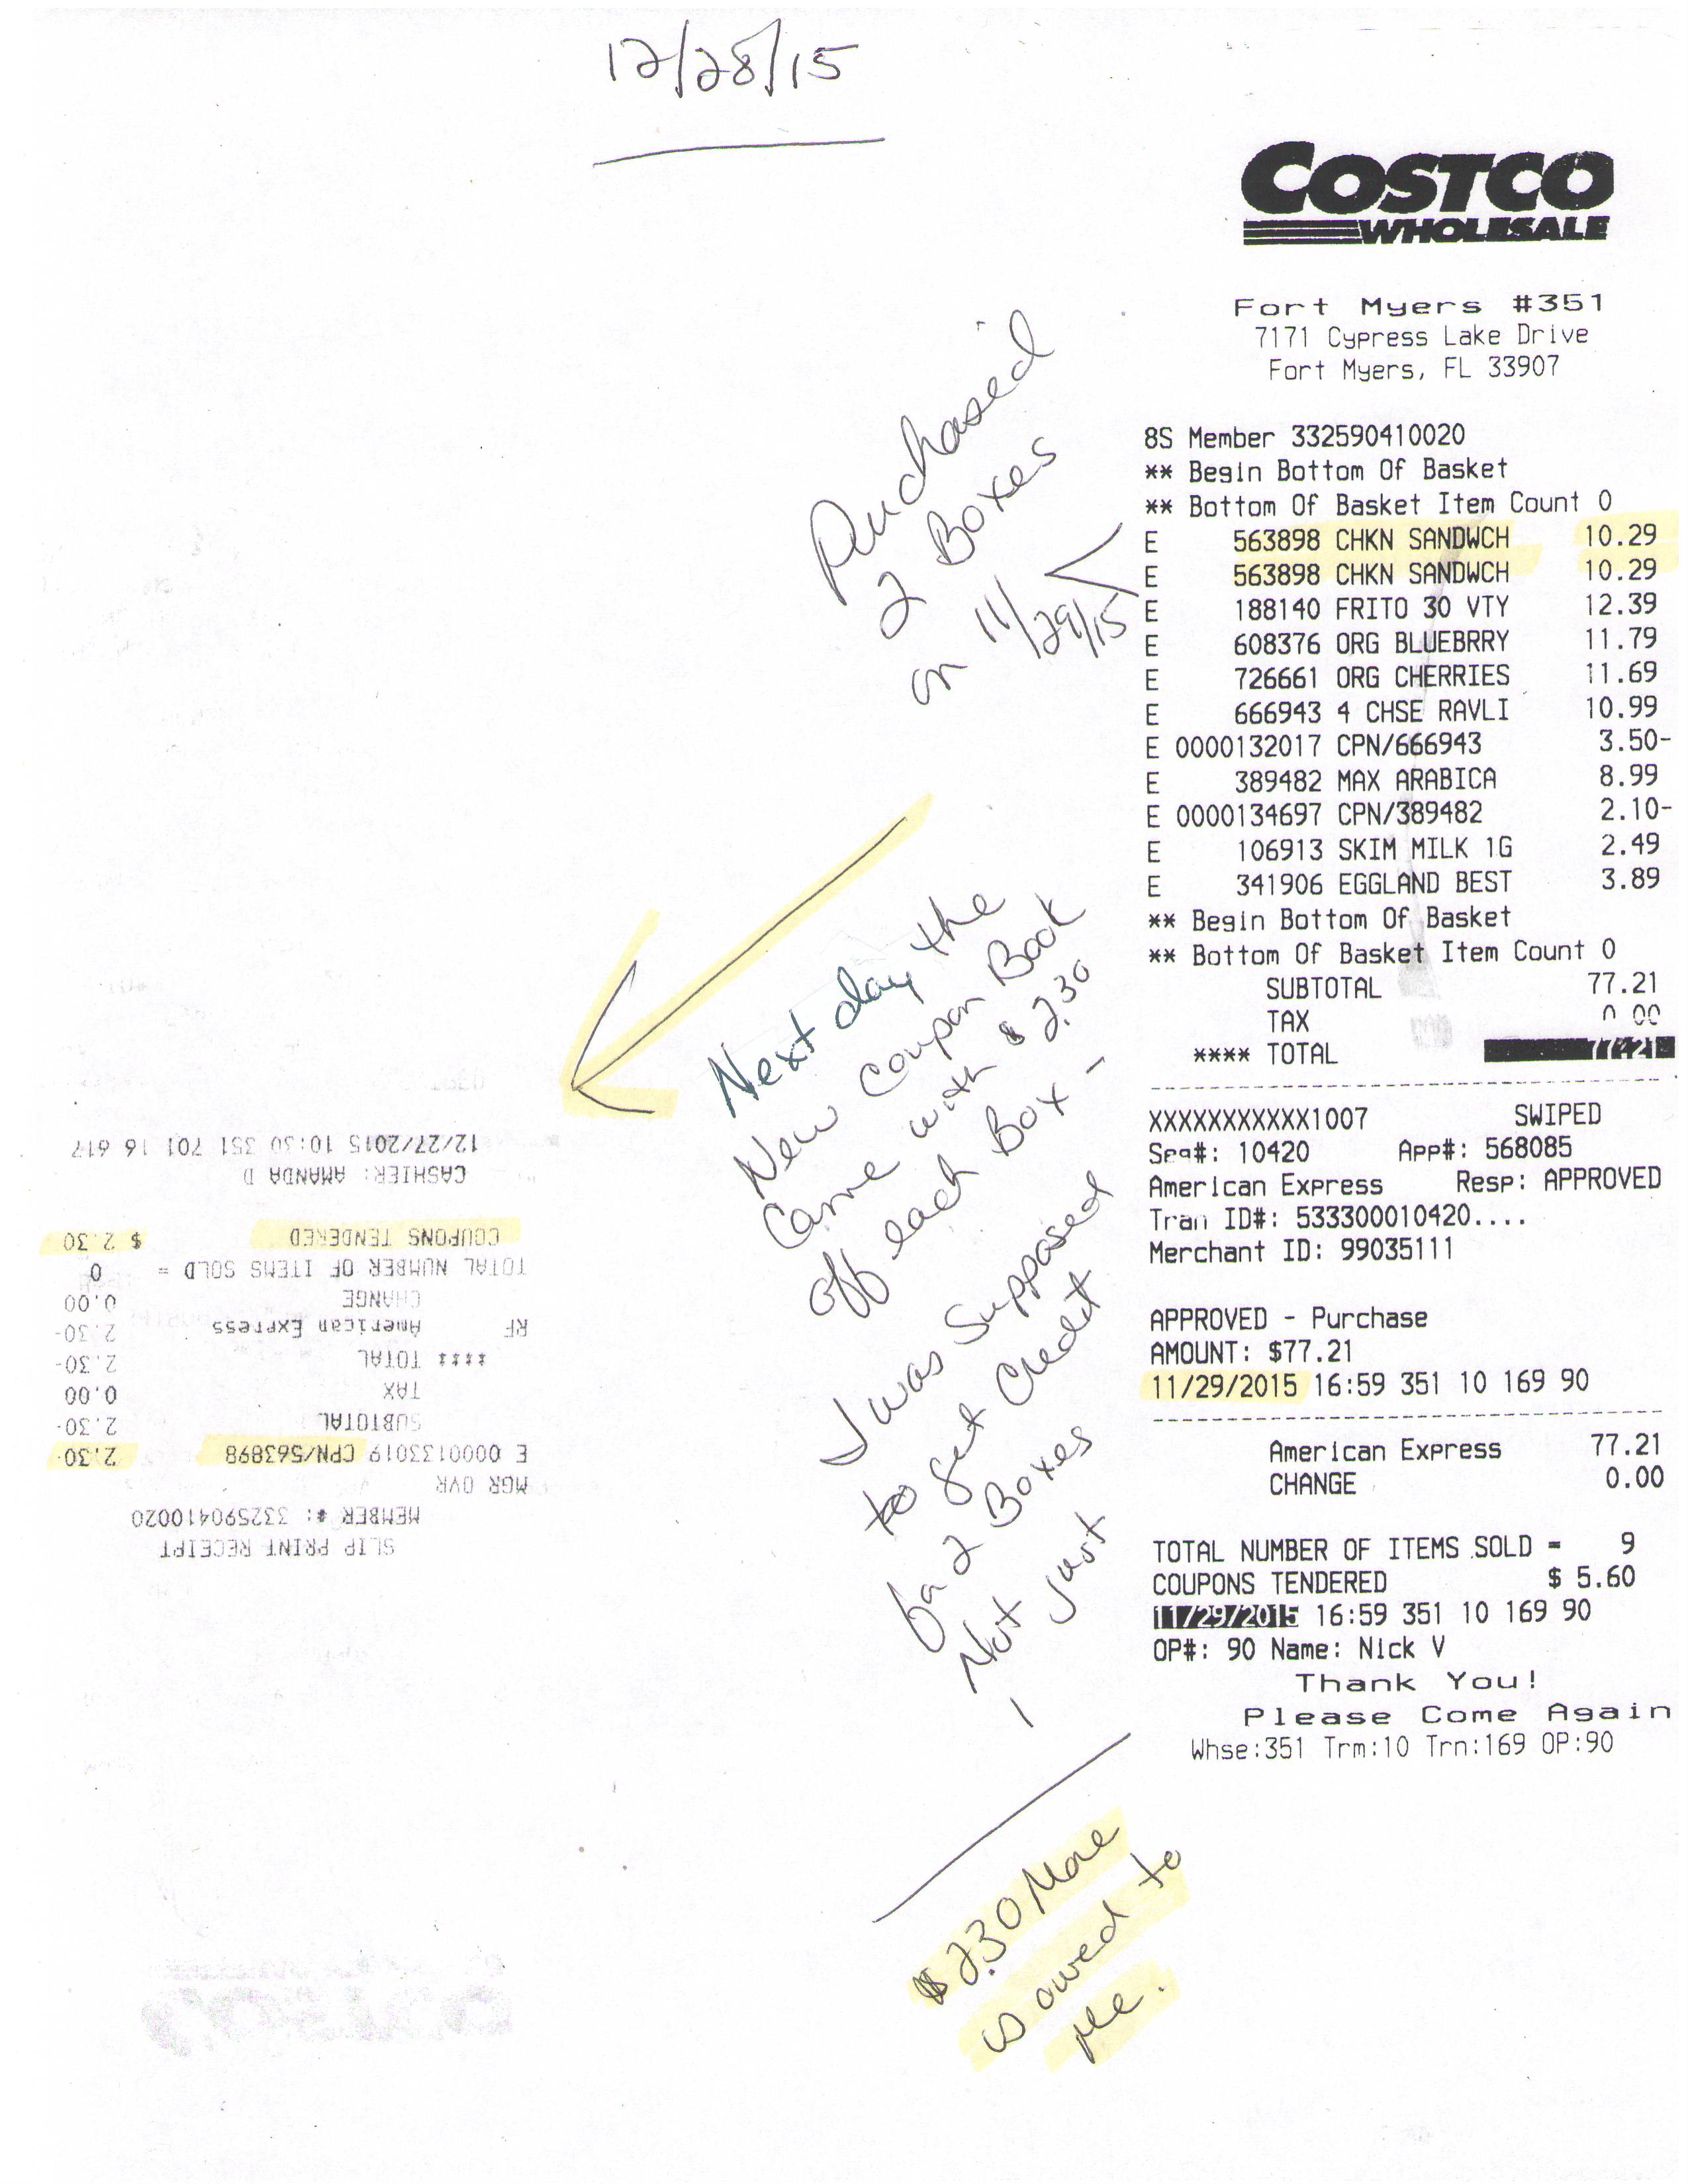 12/28/15
COSTCO
WHOLESALE
Fort Myers #351
7171 Cypress Lake Drive
Fort Myers, FL 33907
8S Member 332590410020
** Begin Bottom Of Basket
** Bottom Of Basket Item Count 0
E 563898 CHKN SANDWCH 10.29
E 563898 CHKN SANDWCH 10.29
E 188140 FRITO 30 VTY 12.39
E 608376 ORG BLUEBRRY 11.79
E 726661 ORG CHERRIES 11.69
E 666943 4 CHSE RAVLI 10.99
E 0000132017 CPN/666943 3.50-
E 389482 MAX ARABICA 8.99
E 0000134697 CPN/389482 2.10-
E 106913 SKIM MILK 1G 2.49
E 341906 EGGLAND BEST 3.89
** Begin Bottom Of Basket
** Bottom Of Basket Item Count 0
SUBTOTAL 77.21
TAX 0.00
**** TOTAL 77.21
XXXXXXXXXXX1007 SWIPED
Seq#: 10420 App#: 568085
American Express Resp: APPROVED
Tran ID#: 533300010420....
Merchant ID: 99035111
APPROVED - Purchase
AMOUNT: $77.21
11/29/2015 16:59 351 10 169 90
American Express 77.21
CHANGE 0.00
TOTAL NUMBER OF ITEMS SOLD = 9
COUPONS TENDERED $ 5.60
11/29/2015 16:59 351 10 169 90
OP#: 90 Name: Nick V
Thank You!
Please Come Again
Whse:351 Trm:10 Trn:169 OP:90
Purchased
2 Boxes
on 11/29/15
Next day the
New Coupon Book
Came with $2.30
off each Box -
I was Supposed
to get Credit
for 2 Boxes
Not just
1
$2.30 More
is owed to
me.
SLIP PRINT RECEIPT
MEMBER #: 332590410020
MGR OVR
E 0000133019 CPN/563898 2.30-
SUBTOTAL 2.30-
TAX 0.00
**** TOTAL 2.30-
RF American Express 2.30-
CHANGE 0.00
TOTAL NUMBER OF ITEMS SOLD = 0
COUPONS TENDERED $ 2.30
CASHIER: AMANDA D
12/27/2015 10:30 351 701 16 617